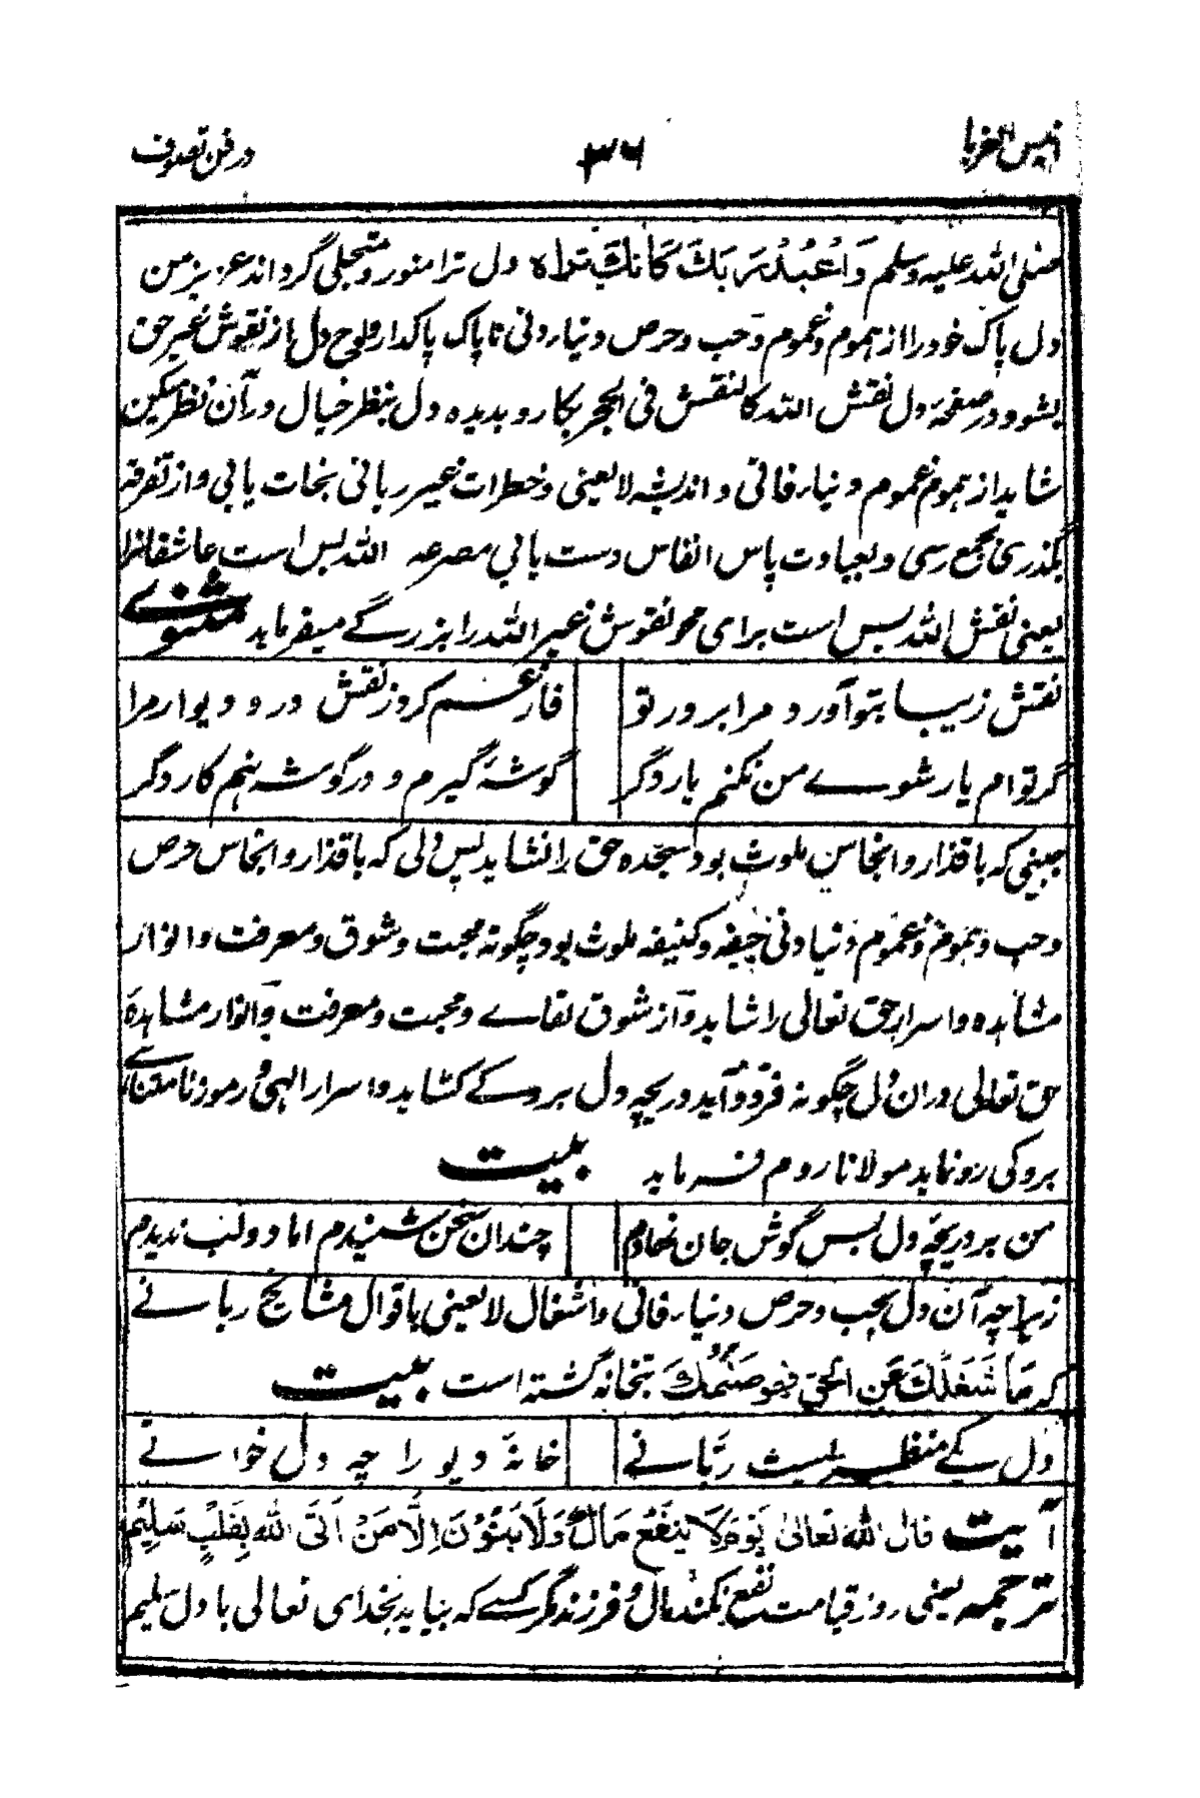 انیس الغربا
۳۶
در فن تصوف
صلی اللہ علیہ وسلم وَاعْبُدْ رَبَّكَ كَاَنَّكَ تَرَاهُ دل ترا منور و متجلی گرداند عزیز من
دل پاک خود را از هموم و غموم و حب و حرص دنیاء دنی ناپاک پاکدار و لوح دل از نقوش غیر حق
بشو و در صفحۂ دل نقش اللہ کالنقش فی الحجر بکار و بدیدہ دل بنظر خیال در آن نظر میکن
شاید از هموم و غموم دنیاء فانی و اندیشہ لا یعنی و خطرات غیر ربانی نجات یابی و از تفرقہ
بگذری بجمع رسی و بعبادت پاس انفاس دست یابی مصرعہ اللہ بس است عاشقانرا
یعنی نقش اللہ بس است برای محو نقوش غیر اللہ را بزرگے میفرماید مثنوے
نقش زیبا بتو آورد مرا بر در تو
فارغم کرد ز نقش در و دیوار مرا
گر تو ام یار شوے من نکنم یار دگر
گوشۂ گیرم و در گوشہ نہم کار دگر
جبینی کہ باقذار و انجاس ملوث بود سجدہ حق را نشاید پس دلی کہ باقذار و انجاس حرص
و حب و هموم و غموم دنیا دنی جیفہ و کنیفہ ملوث بود چگونہ محبت و شوق و معرفت و انوار
مشاہدہ و اسرار حق تعالی را شاید و از شوق لقاے و محبت و معرفت و انوار مشاہدۂ
حق تعالی در ان دل چگونہ فرود آید دریچہ دل بروے کشاید و اسرار الہی و رموز نامتناہی
بروکی رو نماید مولانا روم فرماید بیت
من بر دریچۂ دل بس گوش جان نهادم
چندان سخن شنیدم اما دو لب ندیدم
زیرا چہ آن دل بحب و حرص دنیاء فانی و اشغال لا یعنی باقوال مشائخ ربانے
کہ مَا شَغَلَكَ عَنِ الْحَقِّ فهو صَنَمُكَ بتخانہ گشتہ است بیت
دل یکے منظر یست ربّانے
خانۂ دیو را چہ دل خوانے
آیت قال الله تعالى يَوْمَ لَا يَنْفَعُ مَالٌ وَلَا بَنُوْنَ اِلَّا مَنْ اَتَى الله بِقَلْبٍ سَلِيْمٍ
ترجمہ یعنی روز قیامت نفع نکند مال و فرزند مگر کسے کہ بیاید بخدای تعالی با دل سلیم